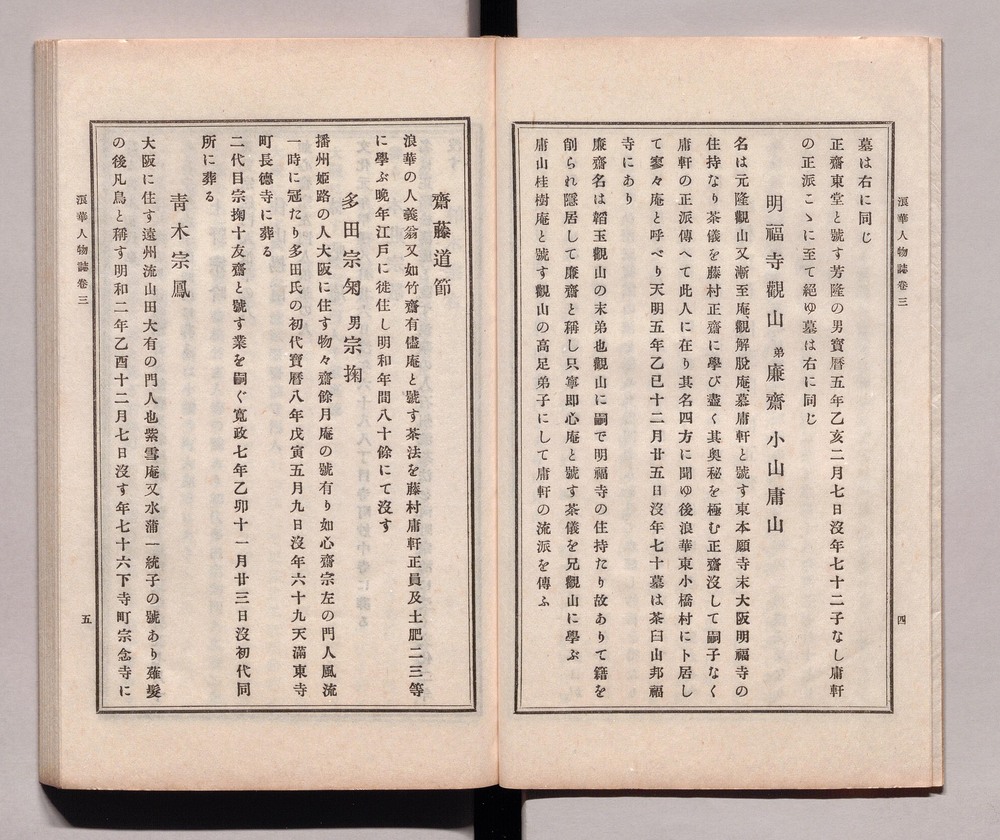 浪華人物誌卷三
四
墓は右に同じ
正齋東堂と號す芳隆の男寳曆五年乙亥二月七日沒年七十二子なし庸軒
の正派こゝに至て絕ゆ墓は右に同じ
明福寺觀山 弟廉齋 小山庸山
名は元隆觀山又漸至庵、觀解脫庵、慕庸軒と號す東本願寺末大阪明福寺の
住持なり茶儀を藤村正齋に學び盡く其奥秘を極む正齋沒して嗣子なく
庸軒の正派傳へて此人に在り其名四方に聞ゆ後浪華東小橋村に卜居し
て寥々庵と呼べり天明五年乙巳十二月廿五日沒年七十墓は茶臼山邦福
寺にあり
廉齋名は韜玉觀山の末弟也觀山に嗣で明福寺の住持たり故ありて籍を
削られ隱居して廉齋と稱し只寧卽心庵と號す茶儀を兄觀山に學ぶ
庸山桂樹庵と號す觀山の高足弟子にして庸軒の流派を傳ふ
齋藤道節
浪華の人義翁又如竹齋有儘庵と號す茶法を藤村庸軒正員及土肥二三等
に學ぶ晚年江戶に徙住し明和年間八十餘にて沒す
多田宗菊 男宗掬
播州姬路の人大阪に住す物々齋餘月庵の號有り如心齋宗左の門人風流
一時に冠たり多田氏の初代寳曆八年戊寅五月九日沒年六十九天滿東寺
町長德寺に葬る
二代目宗掬十友齋と號す業を嗣ぐ寬政七年乙卯十一月廿三日沒初代同
所に葬る
靑木宗鳳
大阪に住す遠州流山田大有の門人也紫雪庵又水蒲一統子の號あり薙髮
の後凡鳥と稱す明和二年乙酉十二月七日沒す年七十六下寺町宗念寺に
浪華人物誌卷三
五